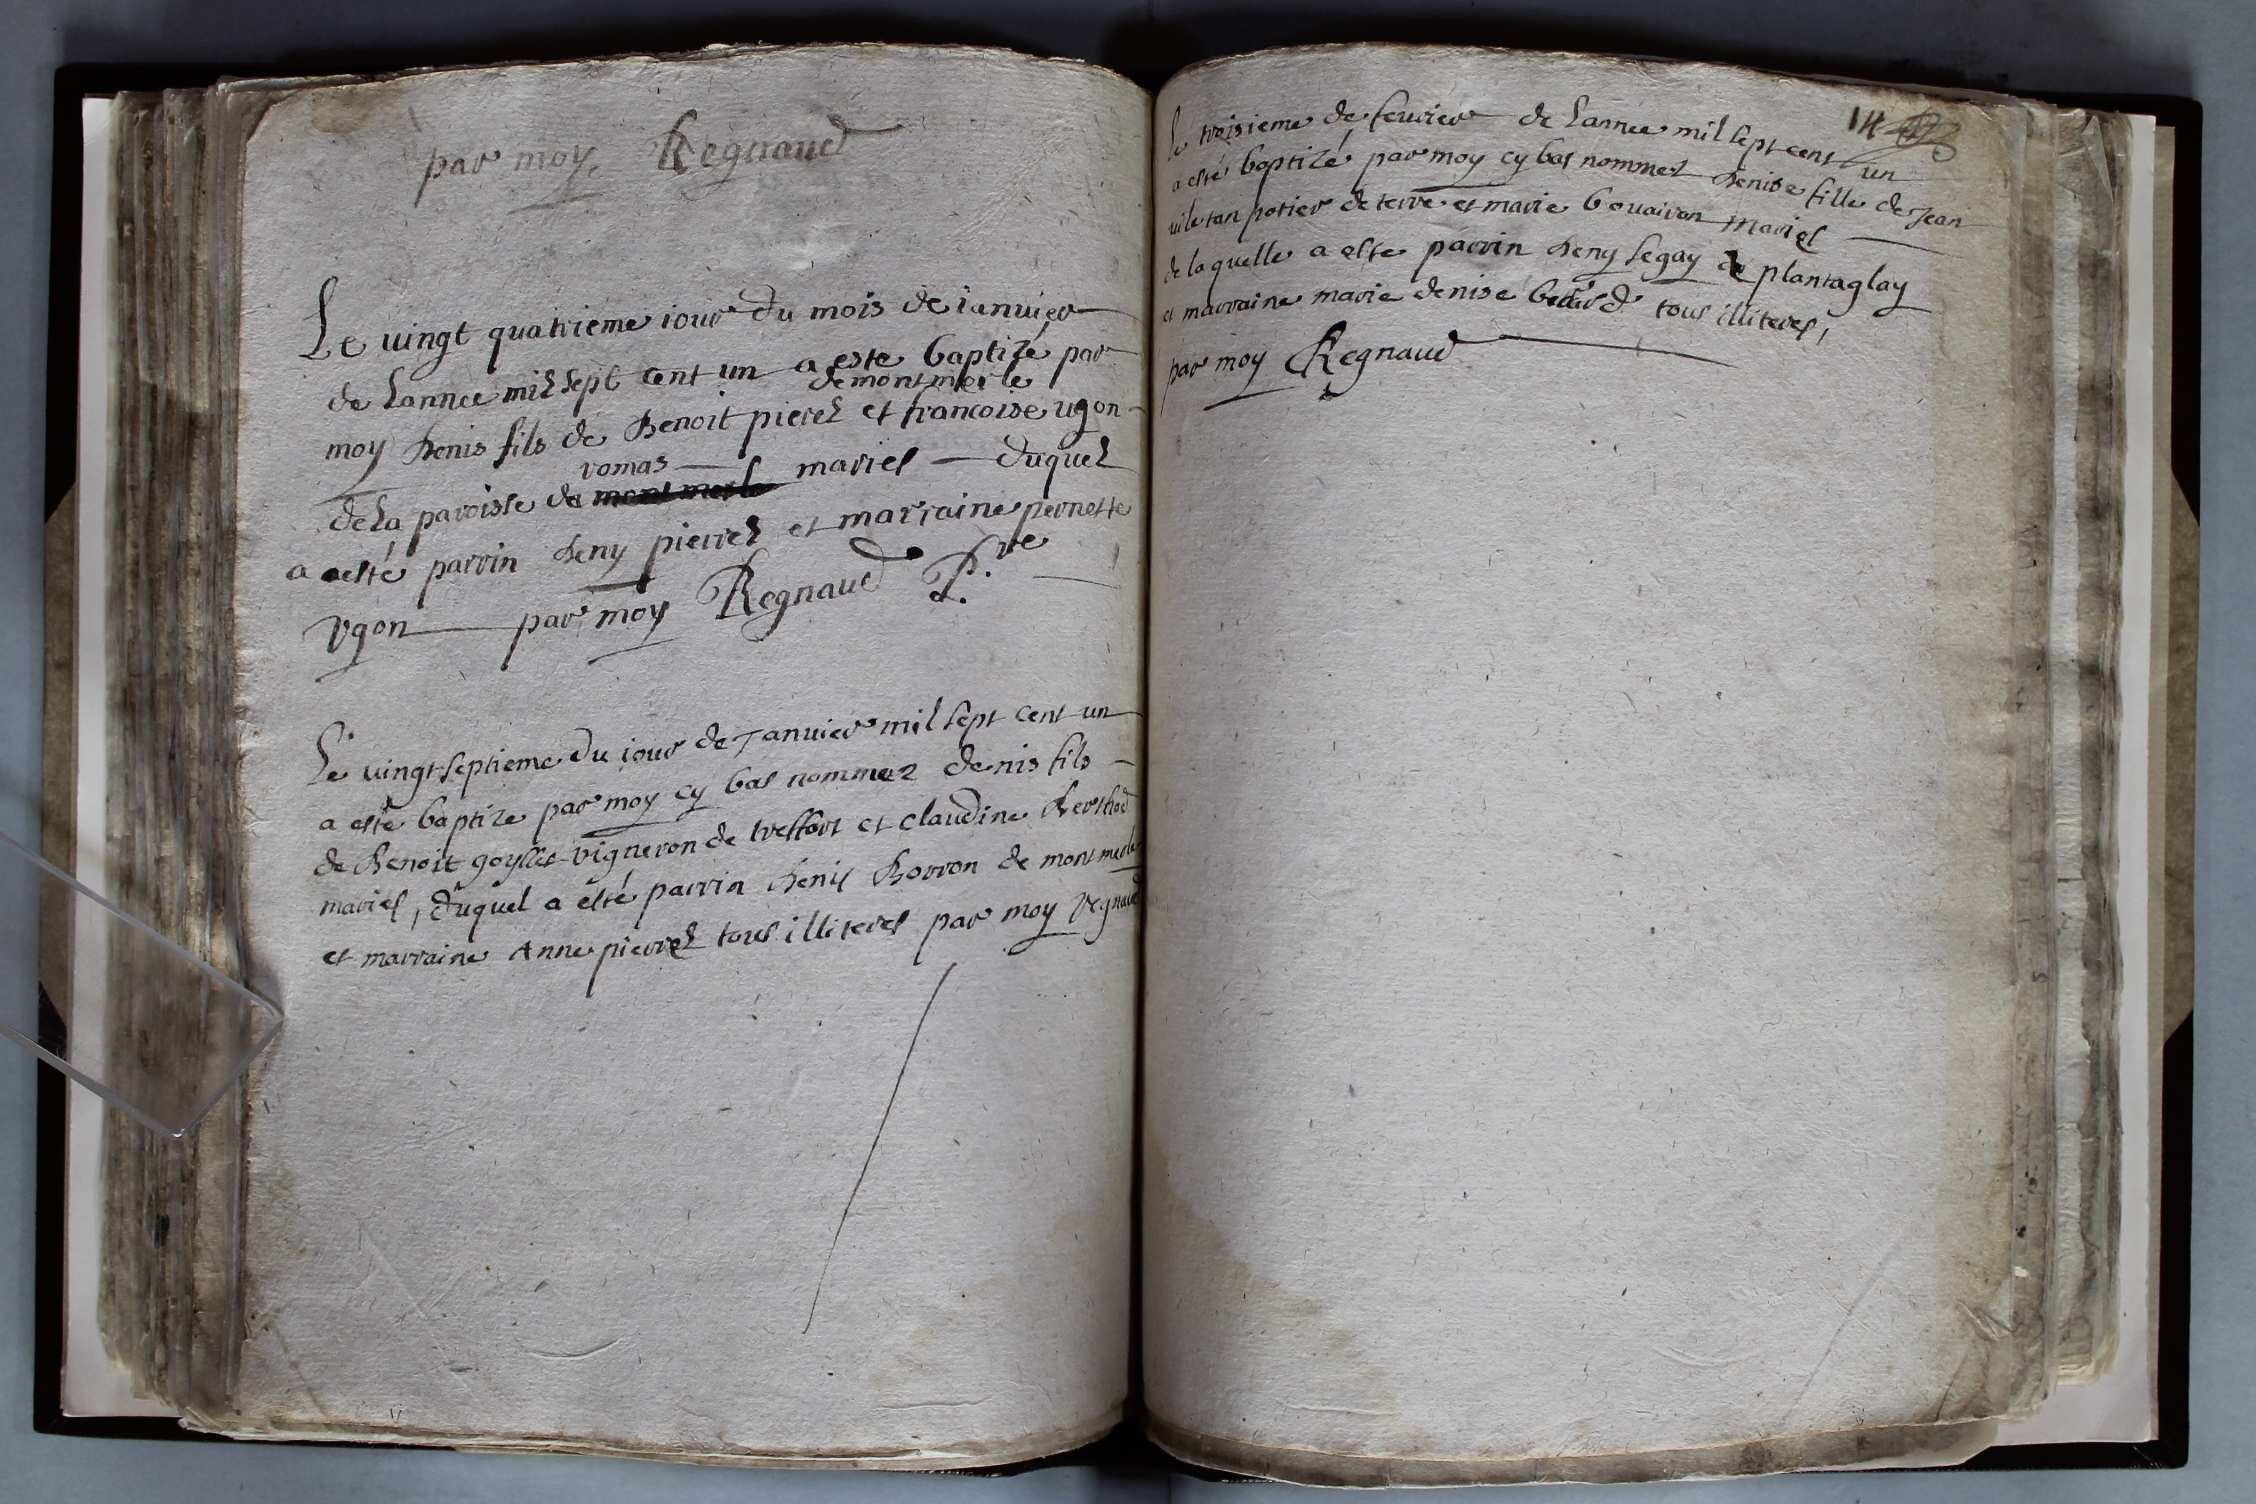 par moy Regnaud
Le vingt quatrieme iour du mois de ianvier
de Lannee mil sept cent un a este baptizé par
demontmerle
moy denis fils de benoit pierrel et francoise ugon
romas
de la paroisse de montmerle mariés duquel
a esté parrin deny pierrel et marraine pernette
Vgon par moy Regnaud P.re
Le vingt septieme du iour de Janvier mil sept cent un
a esté baptize par moy cy bas nommez denis fils
de benoit vigneron de treffort et claudine
mariés, duquel a esté parrin denis borron de montmerle
et marraine Anne pierrel tous illiterés par moy regnaud
14
le troisieme de feuvrier de Lannee mil sept cent un
a esté baptizé par moy cy bas nommez denise fille de Jean
uiletan potier de terre et marie bouairon mariés
de laquelle a este parrin deny legay de plantaglay
et marraine marie denise tous illiterés,
par moy Regnaud